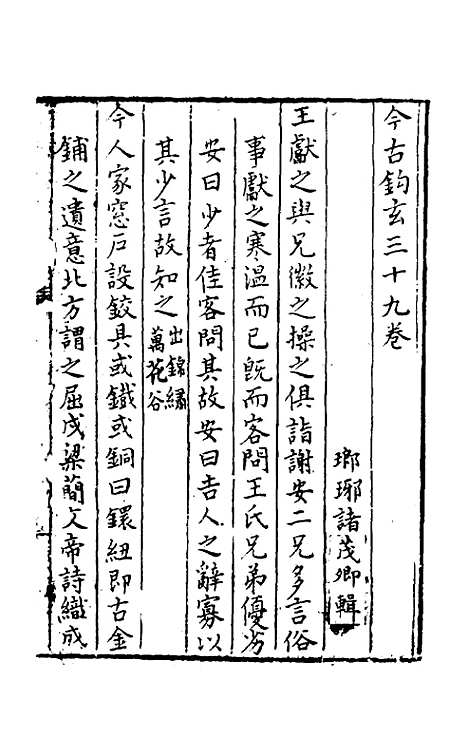 今古鈎玄三十九卷
瑯琊諸茂卿輯
王獻之與兄徽之操之俱詣謝安二兄多言俗
事獻之寒溫而已既而客問王氏兄弟優劣
安曰少者佳客問其故安曰吉人之辭寡以
其少言故知之出錦繡萬花谷
今人家窓戶設鉸具或鐵或銅曰鐶紐即古金
鋪之遺意北方謂之屈戍梁簡文帝詩織成